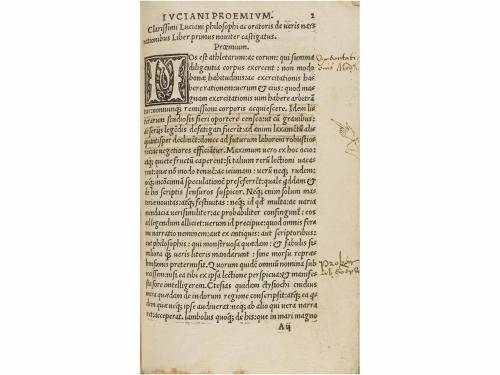 LVCIANI PROEMIVM. 2
Clarissimi Luciani philosophi ac oratoris de ueris nar
rationibus Liber primus nouiter castigatus.
Proœmium.
MOs est athletarum: ac eorum: qui summa
diligentia corpus exercent: non modo
bonæ habitudinis: ac exercitationis ha
bere rationem: uerum & eius: quod ma
gnam exercitationis uim habere arbitrā
tur: nonnunq̃ remissioni corporis acquiescere. Idem lit
terarum studiosis fieri oportere censeo: ut cū grauibus:
ac seriis legēdis defatigati fuerīt: ad animi laxamētū ali
quantisper declinēt: donec ad futurum laborem robustio
res: ac uegetiores efficiātur. Maximum uero ex hoc ocio:
atq; quiete fructū caperent: si talium rerū lectioni uaca
rent: quæ nō modo tenui: ac ieiunam: uerū neq; rudem:
neq; incōcinnā speculationē præseferrēt: quale qddam &
de his scriptis sensuros suspicor. Neq; enim solum ma
teriæ nouitas: aut festiuitas: neq; id qđ multa: ac uaria
mendacia uerisimiliter: ac probabiliter confingunt: eos
ad legendum allicient: uerum id precipue: quod omnis fer
me narratio neminem: aut ex antiquis: aut scriptoribus:
aut philosophis: qui monstruosa quædam: & fabulis si
millima uq; ueris literis mandarunt: sine morsu repræ
hensionis pretermisit. Quorum quidē omniū nomina sub
iecissem: nisi ea tibi ex ipsa lectione perspicua: & manife
sta fore intelligerem. Ctesias quidam ctysiochi cnidius
quædam de indorum regione conscripsit: atq; ea q̃
dam quæ neq; ipse audiuerat: neq; ab alio qui uera nar
ret: acceperat. Iambolus quoq; de his: que in mari magno
A ij